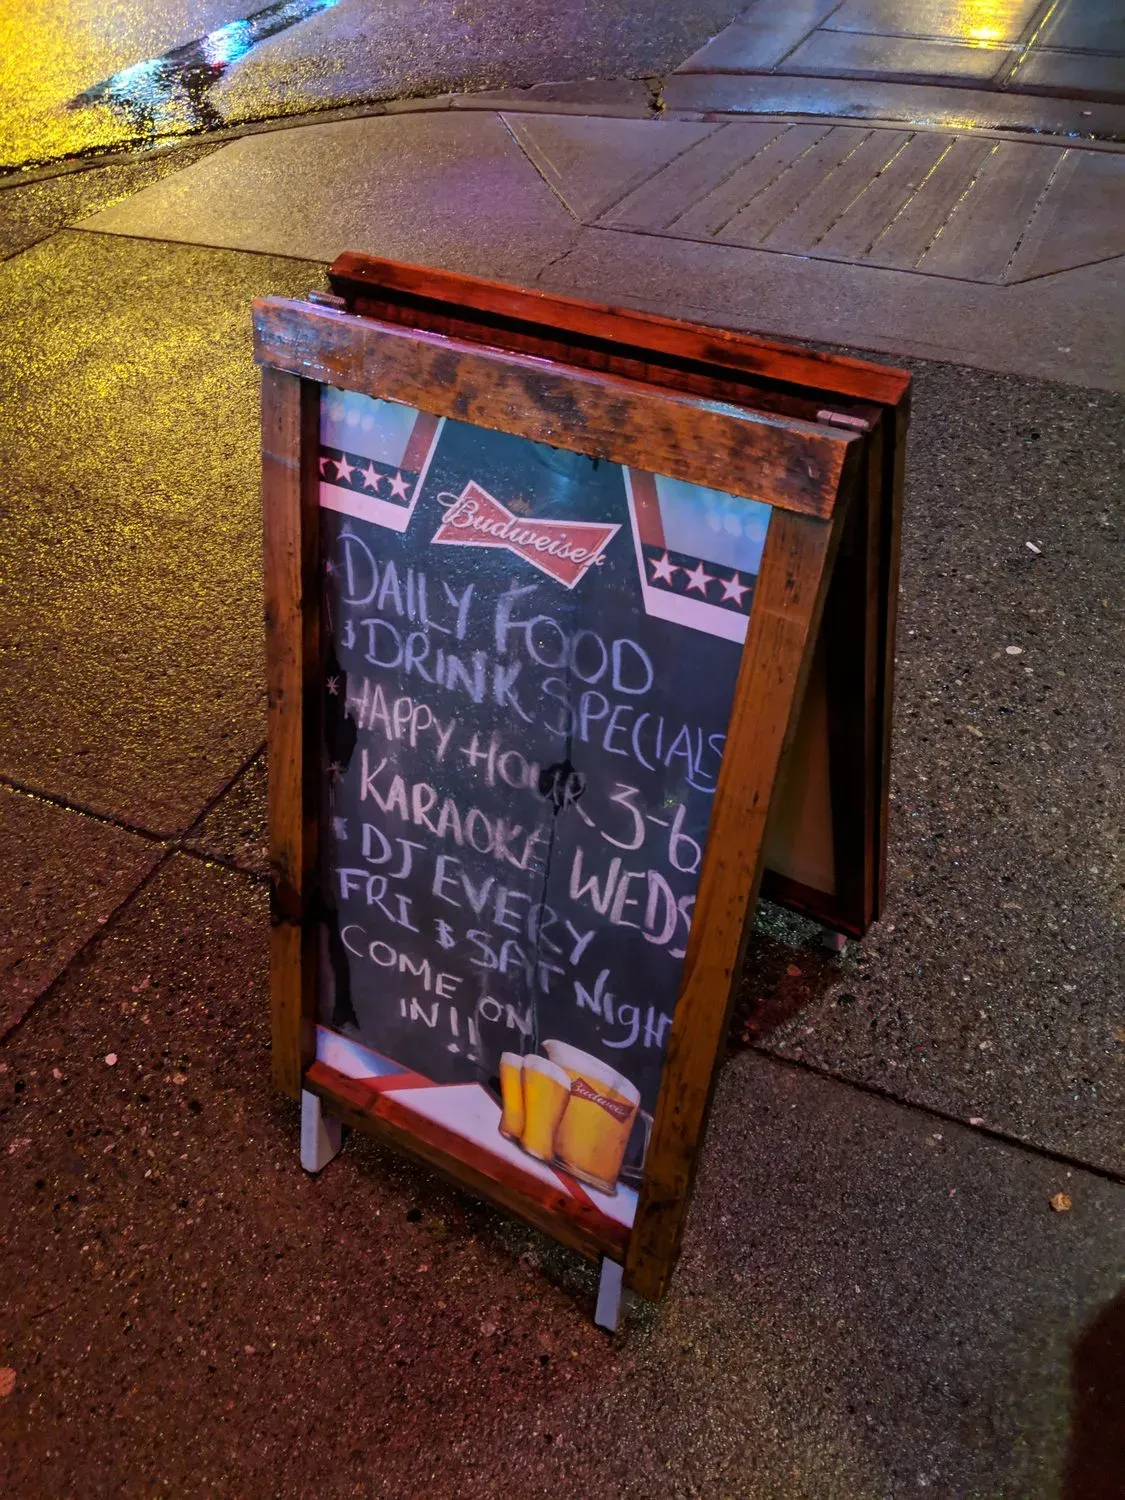 Budweiser
DAILY FOOD
& DRINK SPECIALS
* HAPPY HOUR 3-6
* KARAOKE WEDS
* DJ EVERY
FRI & SAT NigHT
COME ON
IN!!
Budweiser